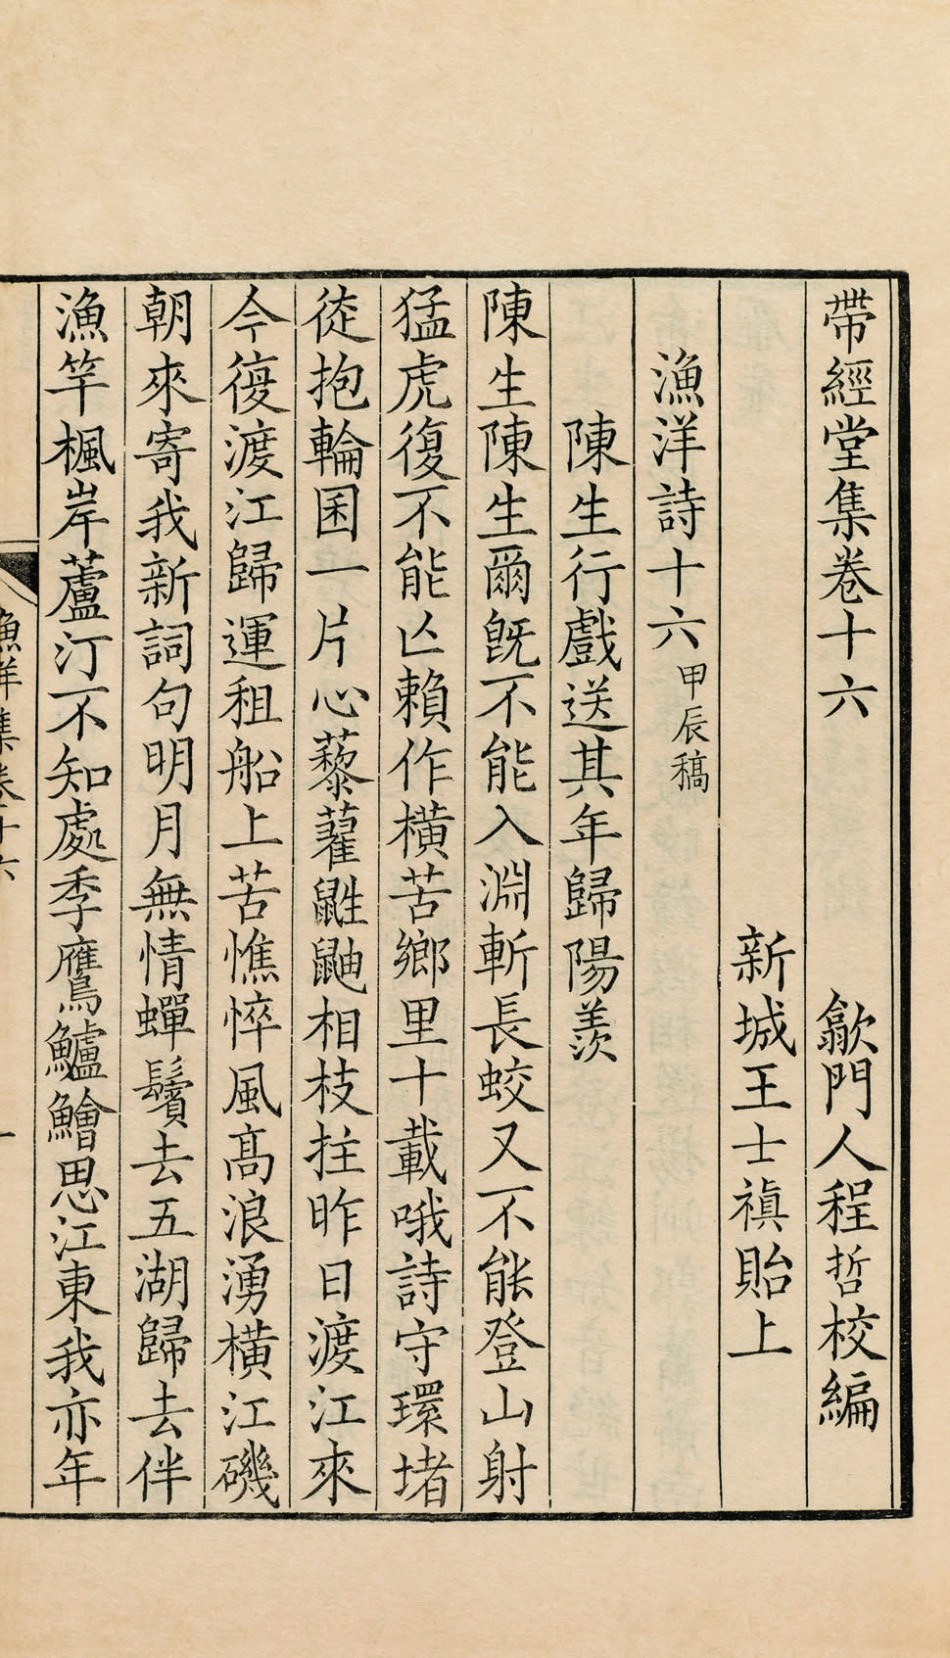 帶經堂集卷十六　歙門人程哲校編
新城王士禛貽上
漁洋詩十六甲辰稿
陳生行戲送其年歸陽羨
陳生陳生爾旣不能入淵斬長蛟又不能登山射
猛虎復不能亾賴作橫苦鄉里十載哦詩守環堵
徒抱輪囷一片心藜藿鼪鼬相枝拄昨日渡江來
今復渡江歸運租船上苦憔悴風高浪湧橫江磯
朝來寄我新詞句明月無情蟬鬢去五湖歸去伴
漁竿楓岸蘆汀不知處季鷹鱸鱠思江東我亦年
漁洋集卷十六
一